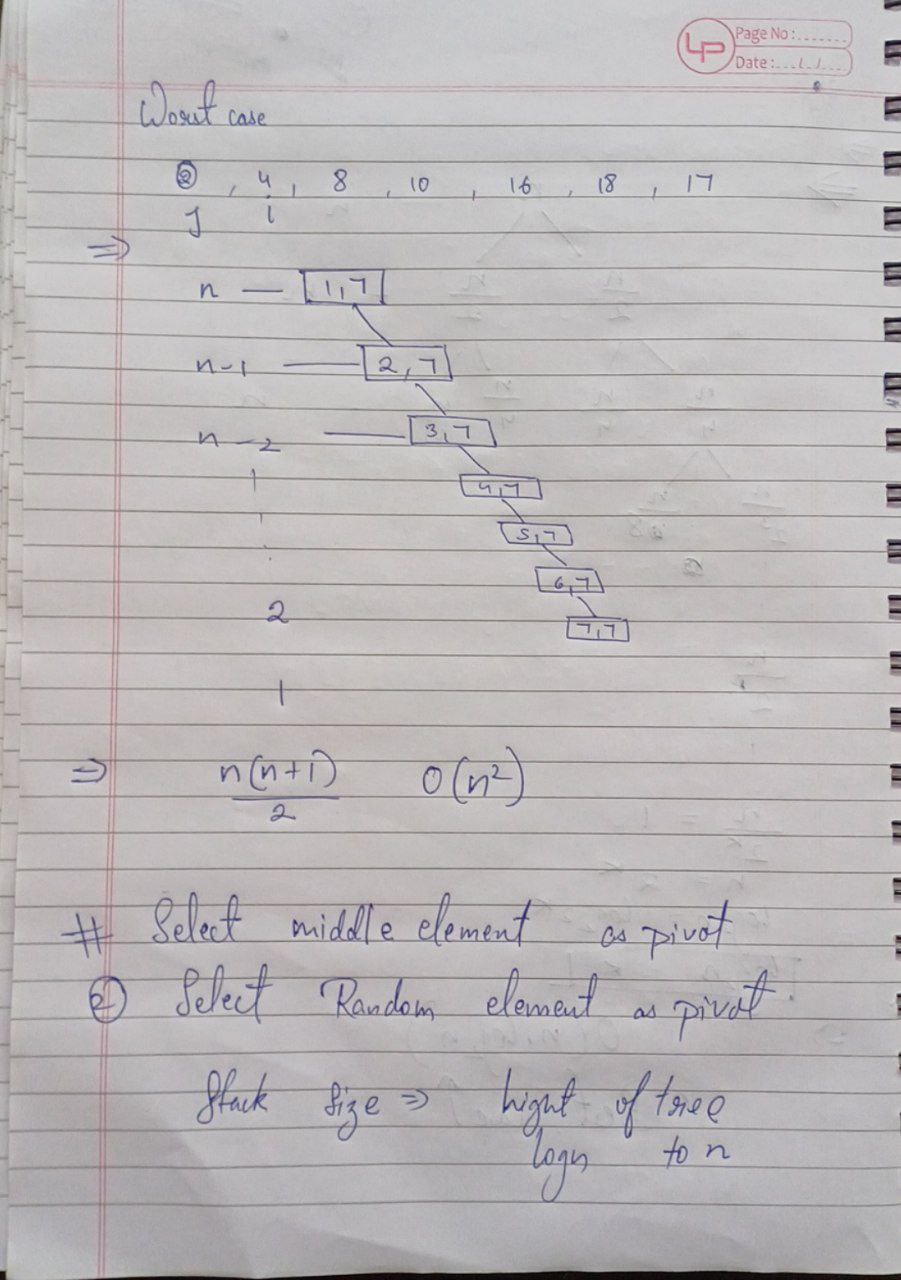 LP Page No :.......
Date :...../...../.....
Worst case
2 , 4 , 8 , 10 , 16 , 18 , 17
J i
⇒
n — 1,7
n-1 — 2,7
n-2 — 3,7
4,7
5,7
6,7
2
7,7
1
⇒ n(n+1)/2 O(n²)
# Select middle element as pivot
② Select Random element as pivot
Stack size ⇒ hight of tree
logn to n